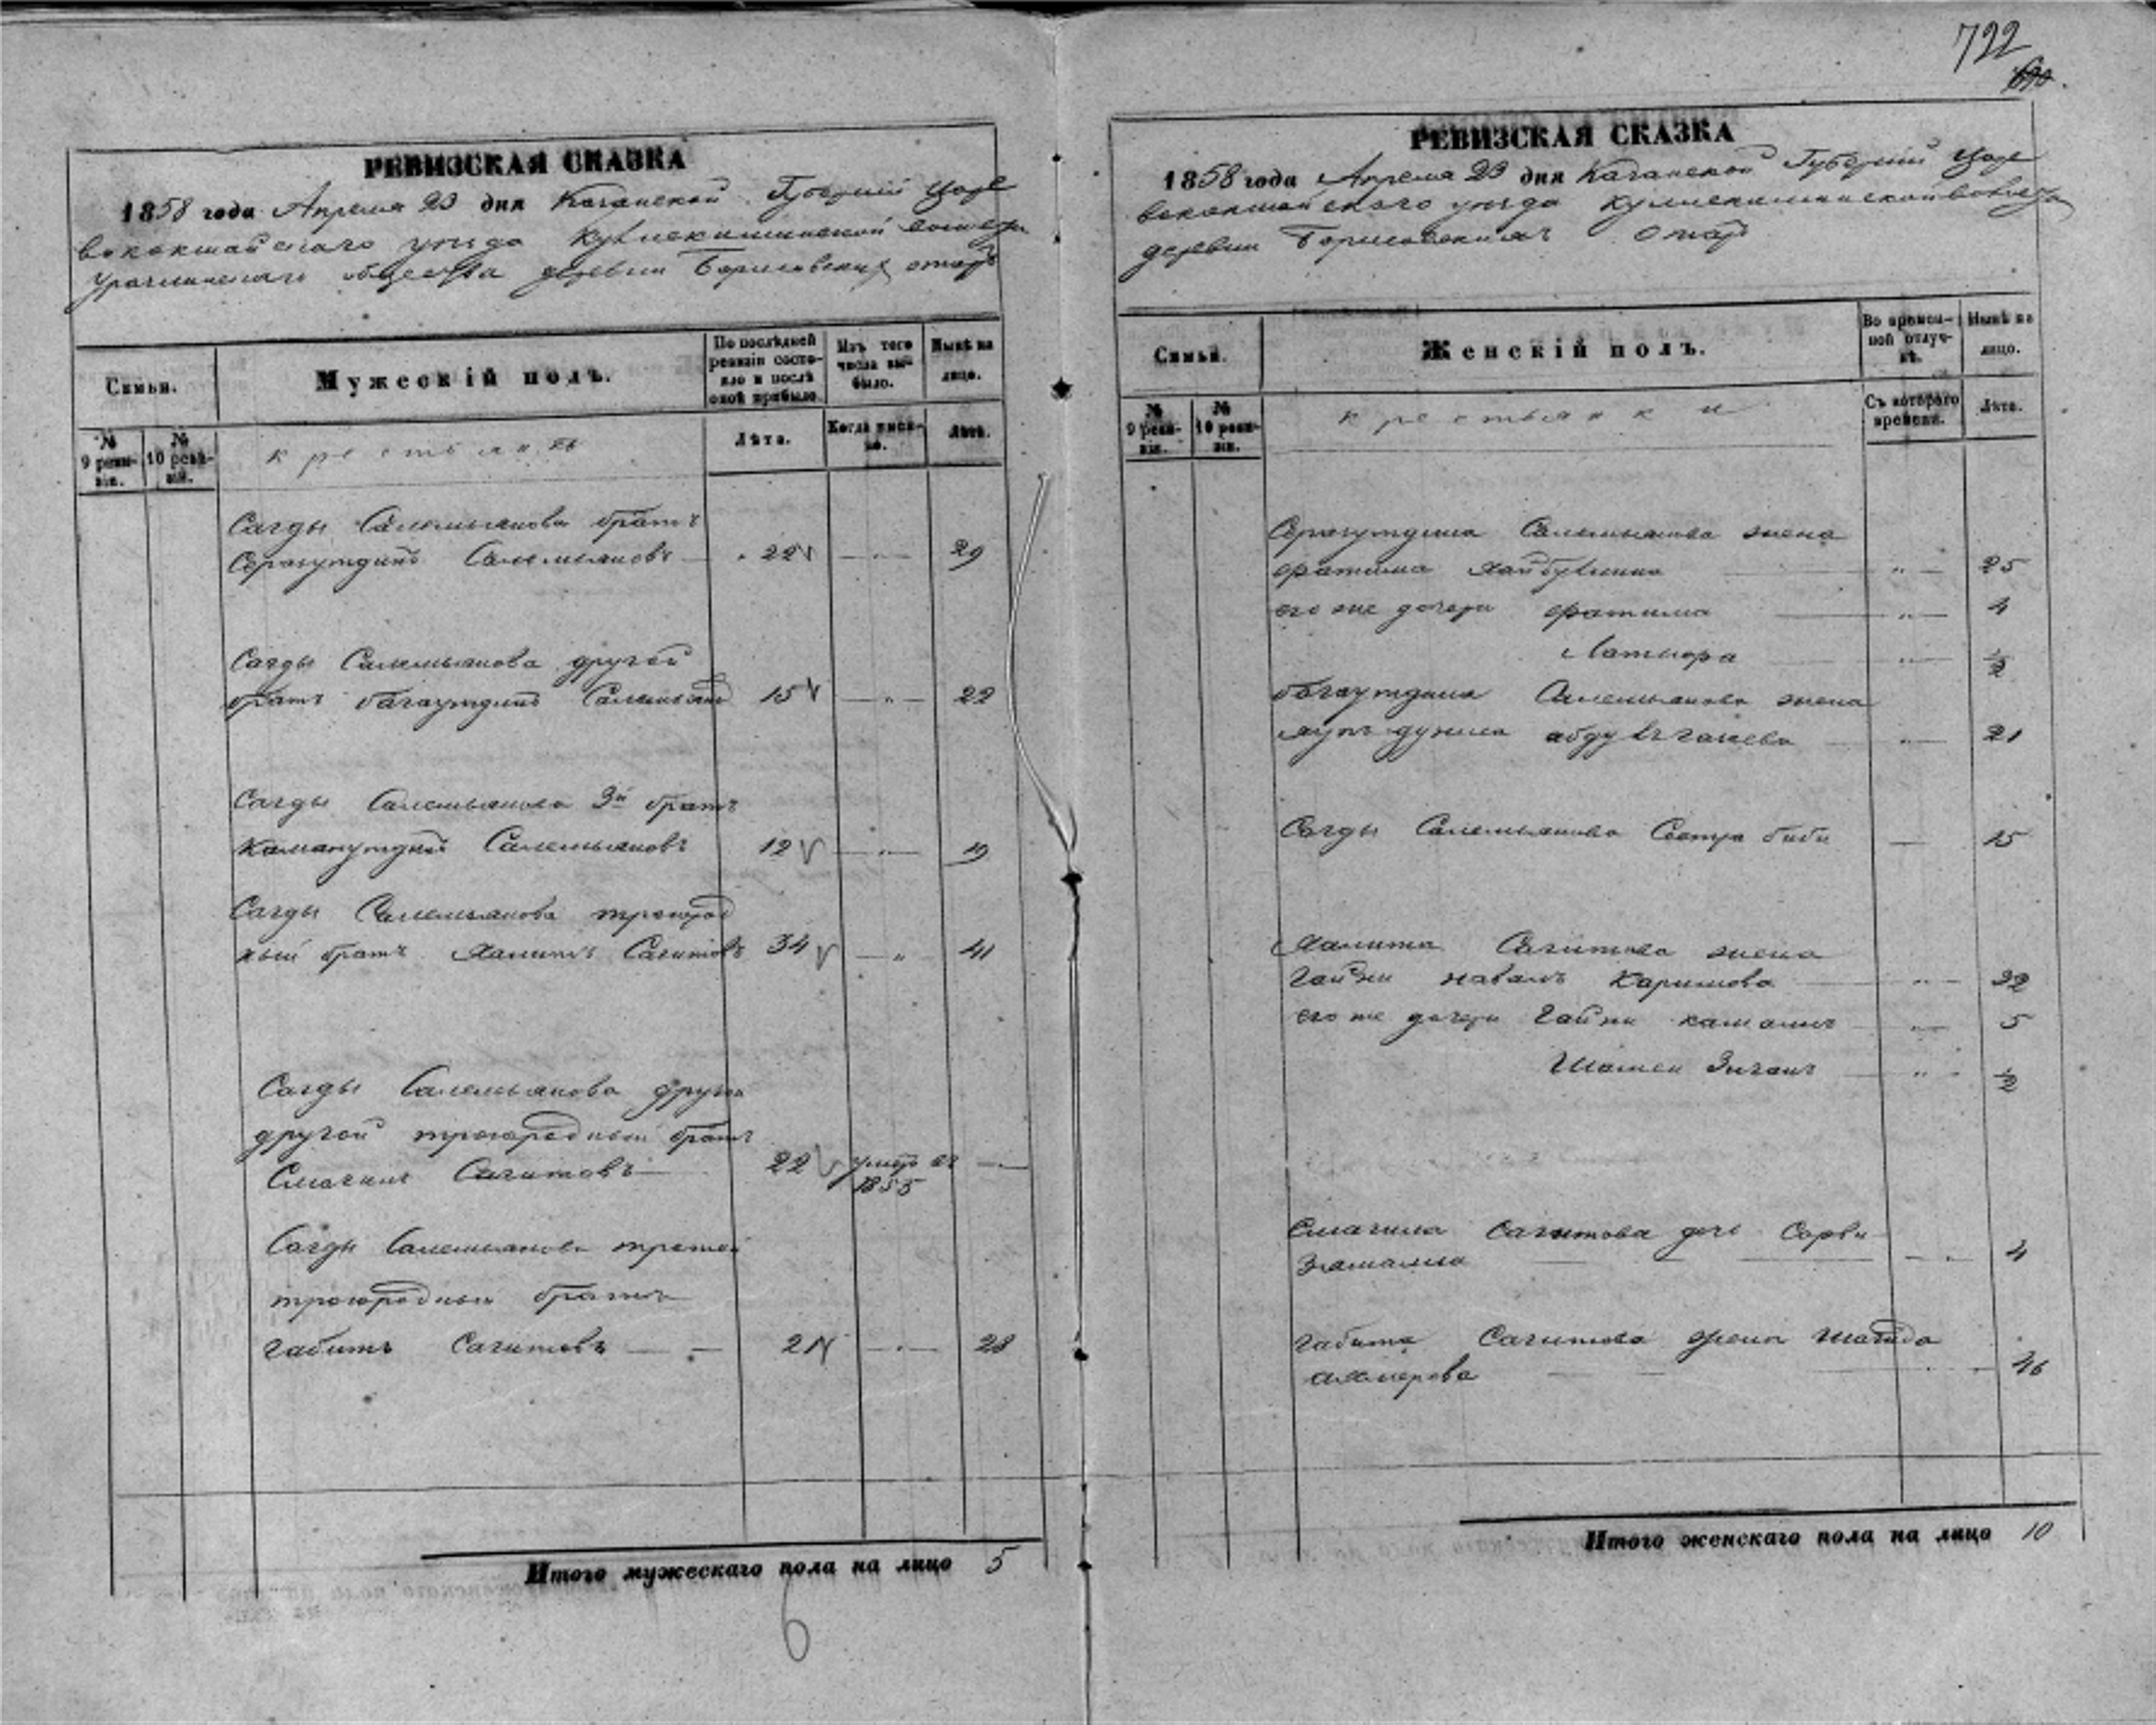 722
РЕВИЗСКАЯ СКАЗКА
1858 года Апреля 23 дня Казанской Губернии Царе
вококшайскаго уезда волости
общества деревни Борисовских отар
Семьи.
Мужескій полъ.
По послѣдней ревизіи состояло и послѣ оной прибыло.
Изъ того числа выбыло.
Нынѣ на лицо.
№ 9 ревизіи.
№ 10 ревизіи.
крестьянъ
Лѣта.
Когда именно.
Лѣта.
Сагды Салемьянова братъ
Серазутдинъ Салемьяновъ 22 29
Сагды Салемьянова другой
братъ багаутдинъ Салемьянов 15 22
Сагды Салемьянова 3й братъ
Салемьяновъ 12 19
Сагды Салемьянова троюрод
ный братъ Хамитъ Сагитовъ 34 41
Сагды Салемьянова
другой троюродный братъ
Смагилъ Сагитовъ 22 умер въ 1855
Сагды Салемьянова третей
троюродный братъ
габитъ Сагитовъ 21 28
Итого мужескаго пола на лицо 5
6
РЕВИЗСКАЯ СКАЗКА
1858 года Апреля 23 дня Казанской Губернии Царе
вококшайскаго уезда волости
деревни Борисовских Отар
Семьи.
Женскій полъ.
Во временной отлучкѣ.
Нынѣ на лицо.
№ 9 ревизіи.
№ 10 ревизіи.
крестьянки
Съ котораго времени.
Лѣта.
Серазутдина Салемьянова жена
фатима Хайбуллина 25
его же дочери фатима 4
1/2
багаутдина Салемьянова жена
21
Сагды Салемьянова Сестра биби 15
Хамита Сагитова жена
Каримова 32
его же дочери Гайни камалъ 5
1/2
Смагила Сагитова дочь Сарви
4
габита Сагитова жена шагида
46
Итого женскаго пола на лицо 10